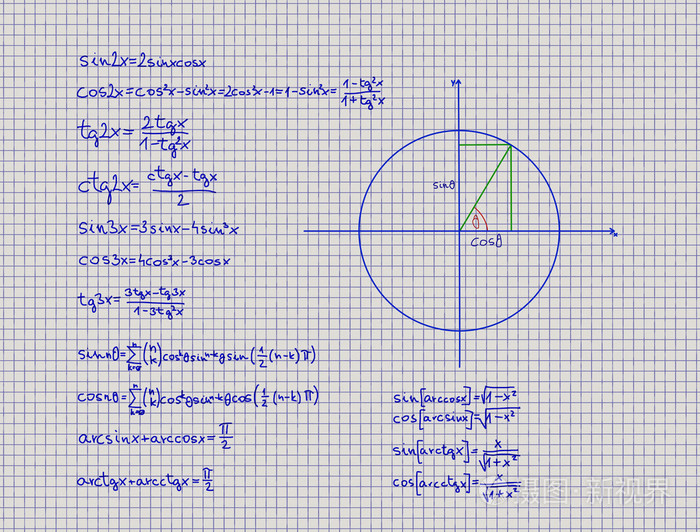 sin2x=2sinxcosx
cos2x=cos²x-sin²x=2cos²x-1=1-sin²x=(1-tg²x)/(1+tg²x)
tg2x=(2tgx)/(1-tg²x)
ctg2x=(ctgx-tgx)/2
sin3x=3sinx-4sin³x
cos3x=4cos³x-3cosx
tg3x=(3tgx-tg3x)/(1-3tg²x)
sinnθ=∑ⁿₖ₌₀(n k)cosᵏθsinⁿ⁻ᵏθsin(1/2(n-k)π)
cosnθ=∑ⁿₖ₌₀(n k)cosᵏθsinⁿ⁻ᵏθcos(1/2(n-k)π)
arcsinx+arccosx=π/2
arctgx+arcctgx=π/2
y
sinθ
θ
cosθ
x
sin[arccosx]=√(1-x²)
cos[arcsinx]=√(1-x²)
sin[arctgx]=x/√(1+x²)
cos[arcctgx]=x/√(1+x²)
摄图·新视界